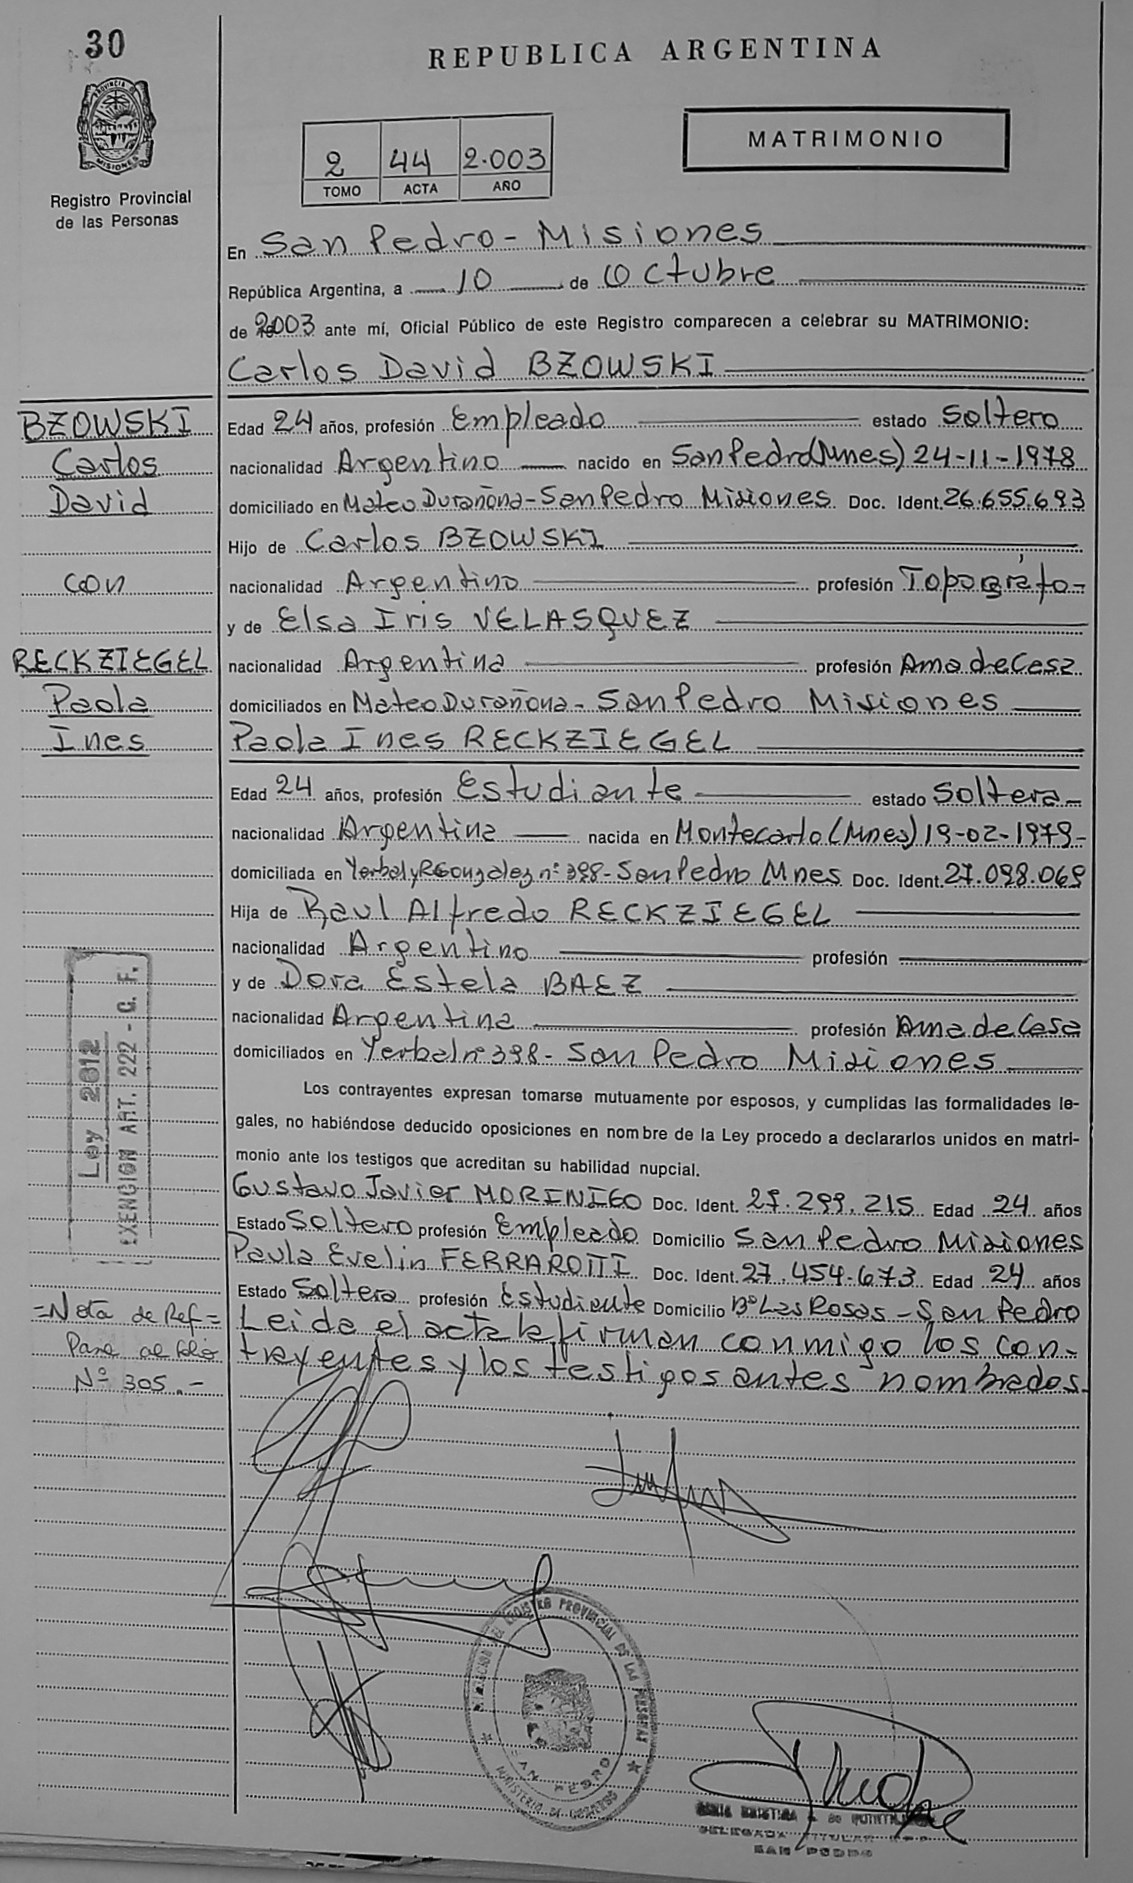 30
REPUBLICA ARGENTINA
PROVINCIA DE MISIONES
Registro Provincial
de las Personas
2 44 2.003
TOMO ACTA AÑO
MATRIMONIO
En San Pedro - Misiones
República Argentina, a 10 de Octubre
de 2003 ante mí, Oficial Público de este Registro comparecen a celebrar su MATRIMONIO:
Carlos David BZOWSKI
BZOWSKI
Carlos
David
con
RECKZIEGEL
Paola
Ines
Edad 24 años, profesión Empleado estado Soltero
nacionalidad Argentino nacido en San Pedro (Mnes) 24-11-1978
domiciliado en Mateo Durañona - San Pedro Misiones Doc. Ident. 26.655.693
Hijo de Carlos BZOWSKI
nacionalidad Argentino profesión Topógrafo-
y de Elsa Iris VELASQUEZ
nacionalidad Argentina profesión Ama de Casa
domiciliados en Mateo Durañona - San Pedro Misiones
Paola Ines RECKZIEGEL
Edad 24 años, profesión Estudiante estado Soltera-
nacionalidad Argentina nacida en Montecarlo (Mnes) 19-02-1979-
domiciliada en Yerbal y R Gonzalez nº 398 - San Pedro Mnes Doc. Ident. 27.098.069
Hija de Raul Alfredo RECKZIEGEL
nacionalidad Argentino profesión
y de Dora Estela BAEZ
nacionalidad Argentina profesión Ama de Casa
domiciliados en Yerbal nº 398 - San Pedro Misiones
Los contrayentes expresan tomarse mutuamente por esposos, y cumplidas las formalidades le-
gales, no habiéndose deducido oposiciones en nombre de la Ley procedo a declararlos unidos en matri-
monio ante los testigos que acreditan su habilidad nupcial.
Gustavo Javier MORINIGO Doc. Ident. 27.299.215 Edad 24 años
Estado Soltero profesión Empleado Domicilio San Pedro Misiones
Paula Evelin FERRAROTTI Doc. Ident. 27.454.673 Edad 24 años
Estado Soltera profesión Estudiante Domicilio Bº Las Rosas - San Pedro
Leida el acta la firman conmigo los con-
trayentes y los testigos antes nombrados.
Ley 2012
EXENCION ART. 222 - C. F.
=Nota de Ref=
Pase al folio
Nº 305.-
REGISTRO PROVINCIAL DE LAS PERSONAS
SAN PEDRO
MINISTERIO DE GOBIERNO
DELEGADA TITULAR
SAN PEDRO